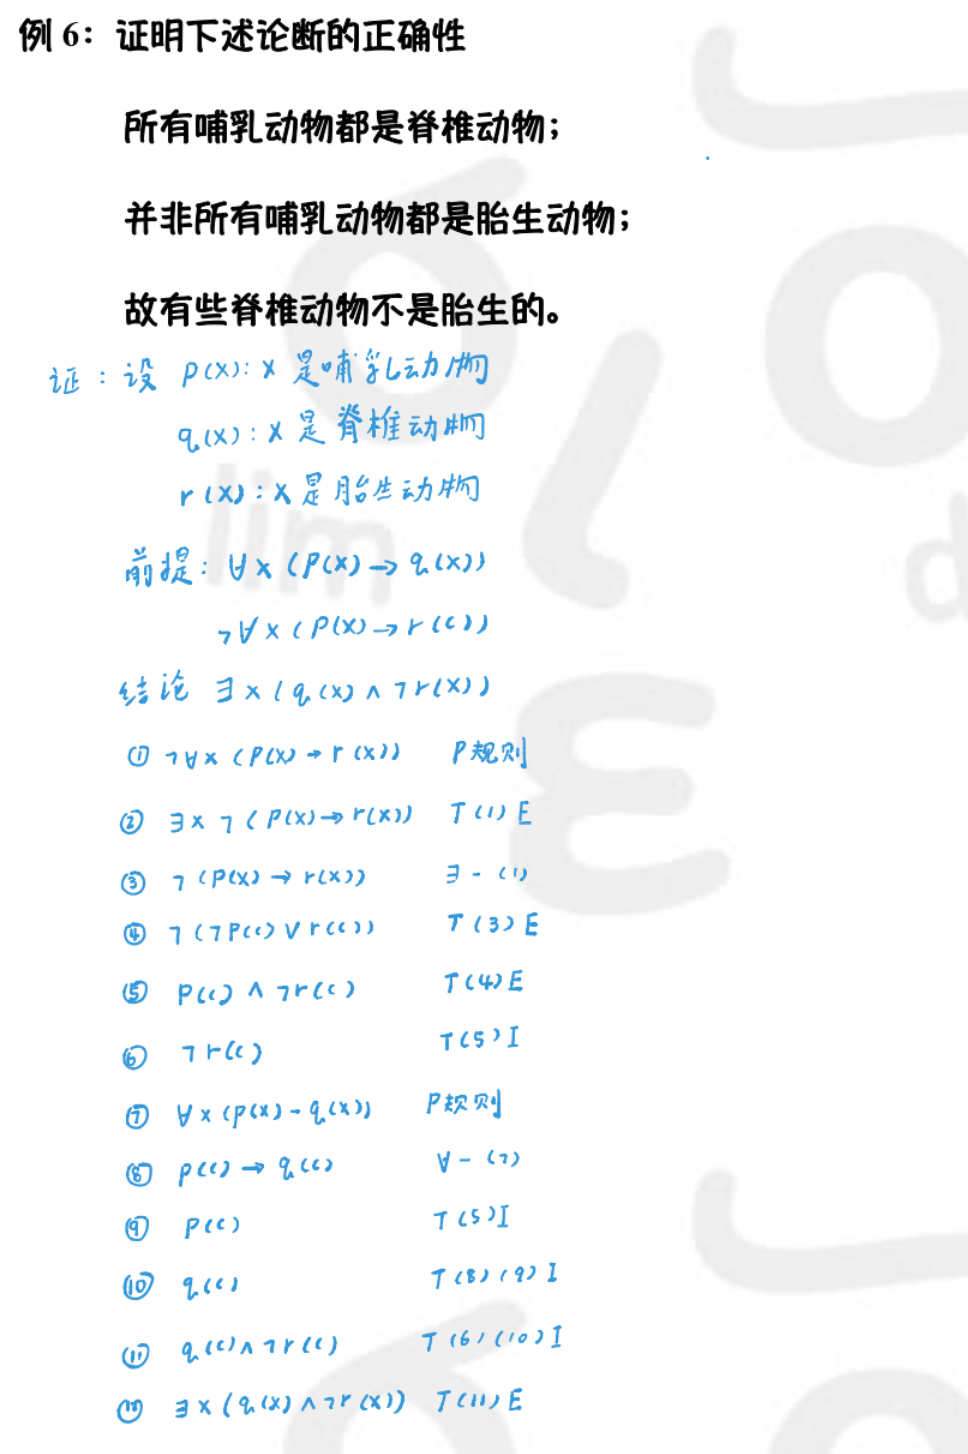 例 6：证明下述论断的正确性
所有哺乳动物都是脊椎动物；
并非所有哺乳动物都是胎生动物；
故有些脊椎动物不是胎生的。
证：设 P(x): x 是哺乳动物
q(x): x 是脊椎动物
r(x): x 是胎生动物
前提: ∀x (P(x) → q(x))
¬∀x (P(x) → r(c))
结论 ∃x (q(x) ∧ ¬r(x))
① ¬∀x (P(x) → r(x)) P规则
② ∃x ¬(P(x) → r(x)) T(1)E
③ ¬(P(x) → r(x)) ∃-(1)
④ ¬(¬P(c) ∨ r(c)) T(3)E
⑤ P(c) ∧ ¬r(c) T(4)E
⑥ ¬r(c) T(5)I
⑦ ∀x (P(x) - q(x)) P规则
⑧ P(c) → q(c) ∀-(7)
⑨ P(c) T(5)I
⑩ q(c) T(8)(9)I
⑪ q(c) ∧ ¬r(c) T(6)(10)I
⑫ ∃x (q(x) ∧ ¬r(x)) T(11)E
lim
d